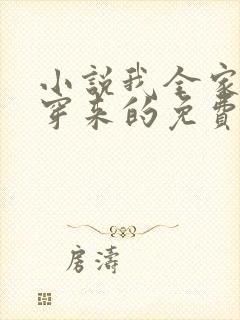 小說我全家
穿來的免費
房濤